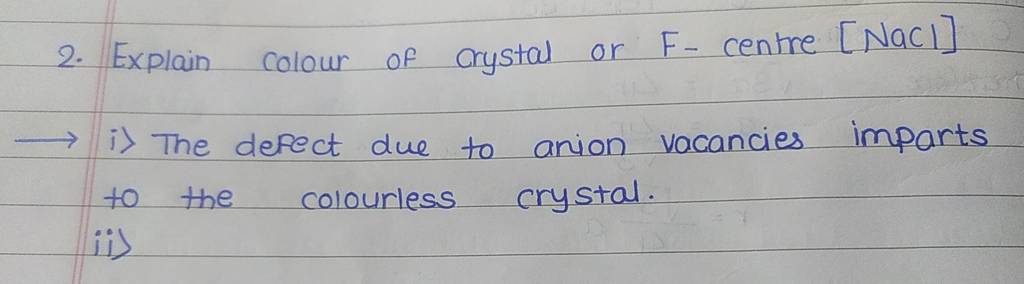 2. Explain colour of crystal or F- centre [Nacl]
→ i) The defect due to anion vacancies imparts
to the colourless crystal.
ii)